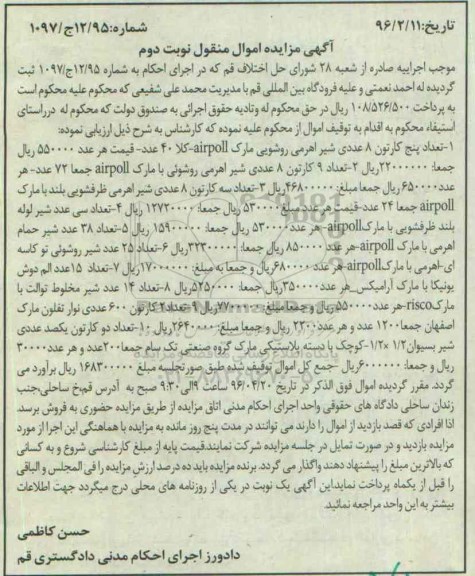 تاریخ:۹۶/۲/۱۱ شماره:۱۲/۹۵ج/۱۰۹۷
آگهی مزایده اموال منقول نوبت دوم
موجب اجراییه صادره از شعبه ۲۸ شورای حل اختلاف قم که در اجرای احکام به شماره ۱۲/۹۵ج/۱۰۹۷ ثبت
گردیده له احمد نعمتی و علیه فرودگاه بین المللی قم با مدیریت محمد علی شفیعی که محکوم علیه محکوم است
به پرداخت ۱۰۸/۵۲۶/۵۰۰ ریال در حق محکوم له وتادیه حقوق اجرائی به صندوق دولت که محکوم له درراستای
استیفاء محکوم به اقدام به توقیف اموال از محکوم علیه نموده که کارشناس به شرح ذیل ارزیابی نموده:
۱-تعداد پنج کارتون ۸ عددی شیر اهرمی روشویی مارک airpoll-کلا ۴۰ عدد- قیمت هر عدد ۵۵۰۰۰۰ ریال
جمعا: ۲۲۰۰۰۰۰۰ریال ۲-تعداد ۹ کارتون ۸ عددی شیر اهرمی روشوئی با مارک airpoll جمعا ۷۲ عدد- هر
عدد۶۵۰۰۰۰ریال جمعا مبلغ: ۴۶۸۰۰۰۰۰ریال ۳-تعداد سه کارتون ۸ عددی شیر اهرمی ظرفشویی بلند با مارک
airpoll جمعا ۲۴ عدد-قیمت هر عدد مبلغ ۵۳۰۰۰۰ ریال جمعا: ۱۲۷۲۰۰۰۰ ریال ۴-تعداد سی عدد شیر لوله
بلند ظرفشویی با مارکairpoll- هر عدد ۵۳۰۰۰۰ ریال جمعا: ۱۵۹۰۰۰۰۰ ریال ۵-تعداد ۳۸ عدد شیر حمام
اهرمی با مارک airpoll-هر عدد ۸۵۰۰۰۰ ریال جمعا: ۳۲۳۰۰۰۰۰ریال ۶-تعداد ۲۵ عدد شیر روشوئی تو کاسه
ای-اهرمی با مارکairpoll-هر عدد ۶۸۰۰۰۰ریال و جمعا به مبلغ: ۱۷۰۰۰۰۰۰ریال ۷-تعداد ۱۵عدد الم دوش
یونیکا با مارک آرامیکس_هر عدد۳۵۰۰۰۰ریال جمعا: ۵۲۵۰۰۰۰ریال ۸-تعداد ۱۴ عدد شیر مخلوط توالت با
مارکrisco-هر عدد۵۵۰۰۰۰ریال و جمعا مبلغ: ۷۷۰۰۰۰۰ریال ۹-تعداد ۲ کارتون ۶۰۰ عددی نوار تفلون مارک
اصفهان جمعا۱۲۰۰ عدد و هر عدد۲۲۰۰ ریال و جمعا مبلغ: ۲۶۴۰۰۰۰ریال ۱۰-تعداد دو کارتون یکصد عددی
شیر پیسوان۱/۲ ×۱/۲-کوچک با دسته پلاستیکی مارک گروه صنعتی تک سام جمعا۲۰۰عدد و هر عدد ۳۰۰۰۰
ریال و جمعا: ۶۰۰۰۰۰۰ریال -جمع کل اموال توقیف شده طبق صورتجلسه مبلغ ۱۶۸۳۰۰۰۰۰ ریال برآورد می
گردد. مقرر گردیده اموال فوق الذکر در تاریخ ۹۶/۰۴/۲۰ ساعت ۹الی۹:۳۰ صبح به آدرس قم،خ ساحلی،جنب
زندان ساحلی دادگاه های حقوقی واحد اجرای احکام مدنی اتاق مزایده از طریق مزایده حضوری به فروش برسد.
اذا افرادی که قصد بازدید از اموال را دارند می توانند در مدت پنج روز مانده به مزایده با هماهنگی این اجرا از مورد
مزایده بازدید و در صورت تمایل در جلسه مزایده شرکت نمایند.قیمت پایه از مبلغ کارشناسی شروع و به کسانی
که بالاترین مبلغ را پیشنهاد دهند واگذار می گردد. برنده مزایده باید ده درصد ارزش مزایده را فی المجلس و الباقی
را قبل از یکماه پرداخت نمایداین آگهی یک نوبت در یکی از روزنامه های محلی درج میگردد جهت اطلاعات
بیشتر به این واحد مراجعه نمائید.
حسن کاظمی
دادورز اجرای احکام مدنی دادگستری قم